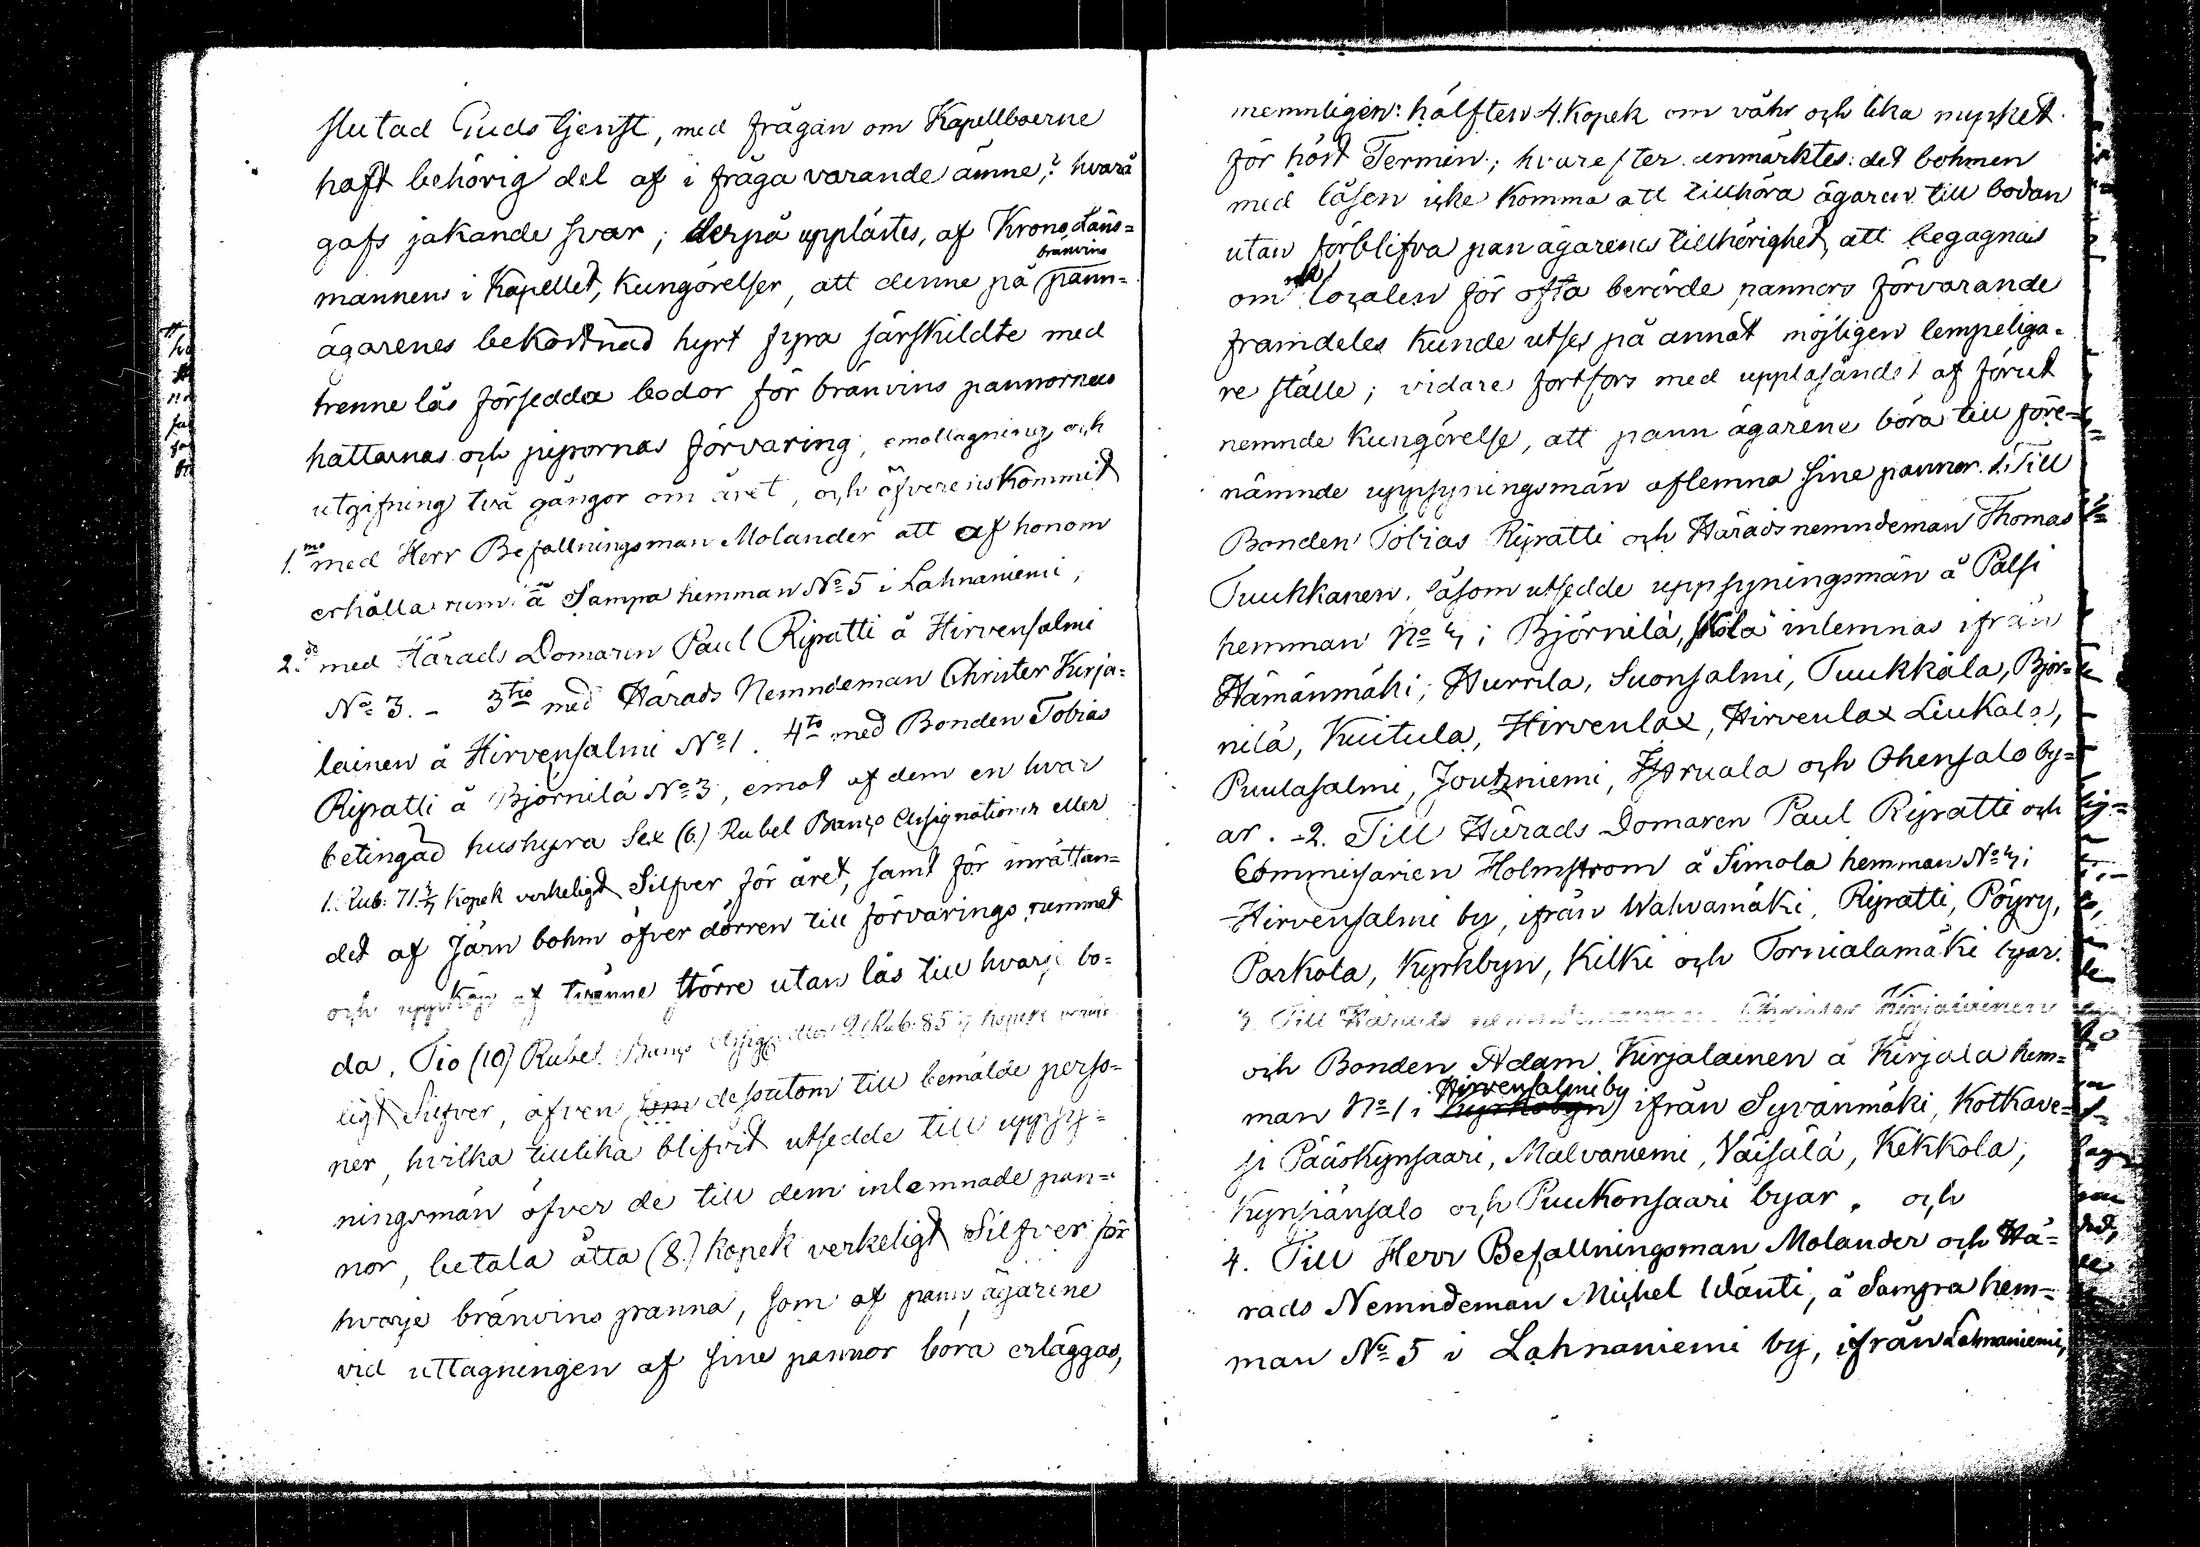 slutad Gudstjenst, med frågan om Kapellboerne
haft behörig del af i fråga varande ämne,? hvarå
gafs jakande svar; derpå upplästes, af Krono Läns=
mannens i Kapellet, Kungörelser, att denne på bränvins pann=
ägarenes bekostnad hyrt fyra särskildte med
trenne lås försedda bodor för bränvins pannornas
hattarnas och pipornas förvaring, emottagning och
utgifning två gångor om året, och öfverenskommit
1.mo med Herr Befallningsman Molander att af honom
erhålla rum å Sampa hemman No 5 i Lahnaniemi,
2.do med Härads Domaren Paul Ripatti å Hirvensalmi
No 3. - 3tio med Härads Nemndeman Christer Kirja=
lainen å Hirvensalmi No 1. 4to med Bonden Tobias
Ripatti å Björnilä No 3, emot af dem en hvar
betingad hushyra Sex (6.) Rubel Banco Assignationer eller
1. Rub: 71 3/7 Kopek verkeligt Silfver för året, samt för inrättan=
det af Järn bohm öfver dörren till förvarings rummet
och uppköp af trenne större utan lås till hvarje bo=
da, Tio (10) Rubel Banco Assig: eller 2 Rub. 85 5/7 kopek verke
ligt Silfver, äfven som dessutom till bemälde perso=
ner, hvilka tillika blifvit utsedde till uppsy=
ningsmän öfver de till dem inlemnade pan=
nor, betala åtta (8.) kopek verkeligt Silfver för
hvarje bränvins panna, som af pann ägarene
vid uttagningen af sine pannor böra erläggas,
nemnligen: hälften 4. Kopek om våhr och lika mycket
för höst Termin; hvarefter anmärktes: det bohmen
med låsen icke komma att tillhöra ägaren till bodan
utan förblifva pan ägarenes tillhörighet, att begagnas
om localen för ofta berörde pannors förvarande
framdeles kunde utses på annat möjligen lempeliga=
re ställe; vidare fortfors med uppläsandet af förut
nemnde Kungörelse, att pann ägarene böra till före=
nämnde uppsyningsmän aflemna sine pannor. 1. Till
Bonden Tobias Ripatti och Häradsnemndeman Thomas
Tuukkanen, såsom utsedde uppsyningsmän å Pälsi
hemman No 4 i Björnilä, inlemnas ifrån
Hämänmäki, Hurrila, Suonsalmi, Tuukkala, Björ=
nilä, Kuitula, Hirvenlax, Hirvenlax Liukala,
Puulasalmi, Joutzniemi, och Ohensalo by=
ar. - 2. Till Härads Domaren Paul Ripatti och
Commisarien Holmstrom å Simola hemman No 4 i
Hirvensalmi by, ifrån Wahvamäki, Ripatti, Pöyry,
Parkola, Kyrkbyn, Kilki och Tornialamäki byar.
3. Till Härads nemndemannen Christer Kirjalainen
och Bonden Adam Kirjalainen å Kirjala hem=
man No 1 i Hirvensalmi by ifrån Syvänmäki, Kotkave=
si Pääskynsaari, Malvaniemi, Väisälä, Kekkola,
Kynsiänsalo och Puukonsaari byar. och
4. Till Herr Befallningsman Molander och Hä=
rads Nemndeman Michel Wänti, å Sampa hem=
man No 5 i Lahnaniemi by, ifrån Lahnaniemi,